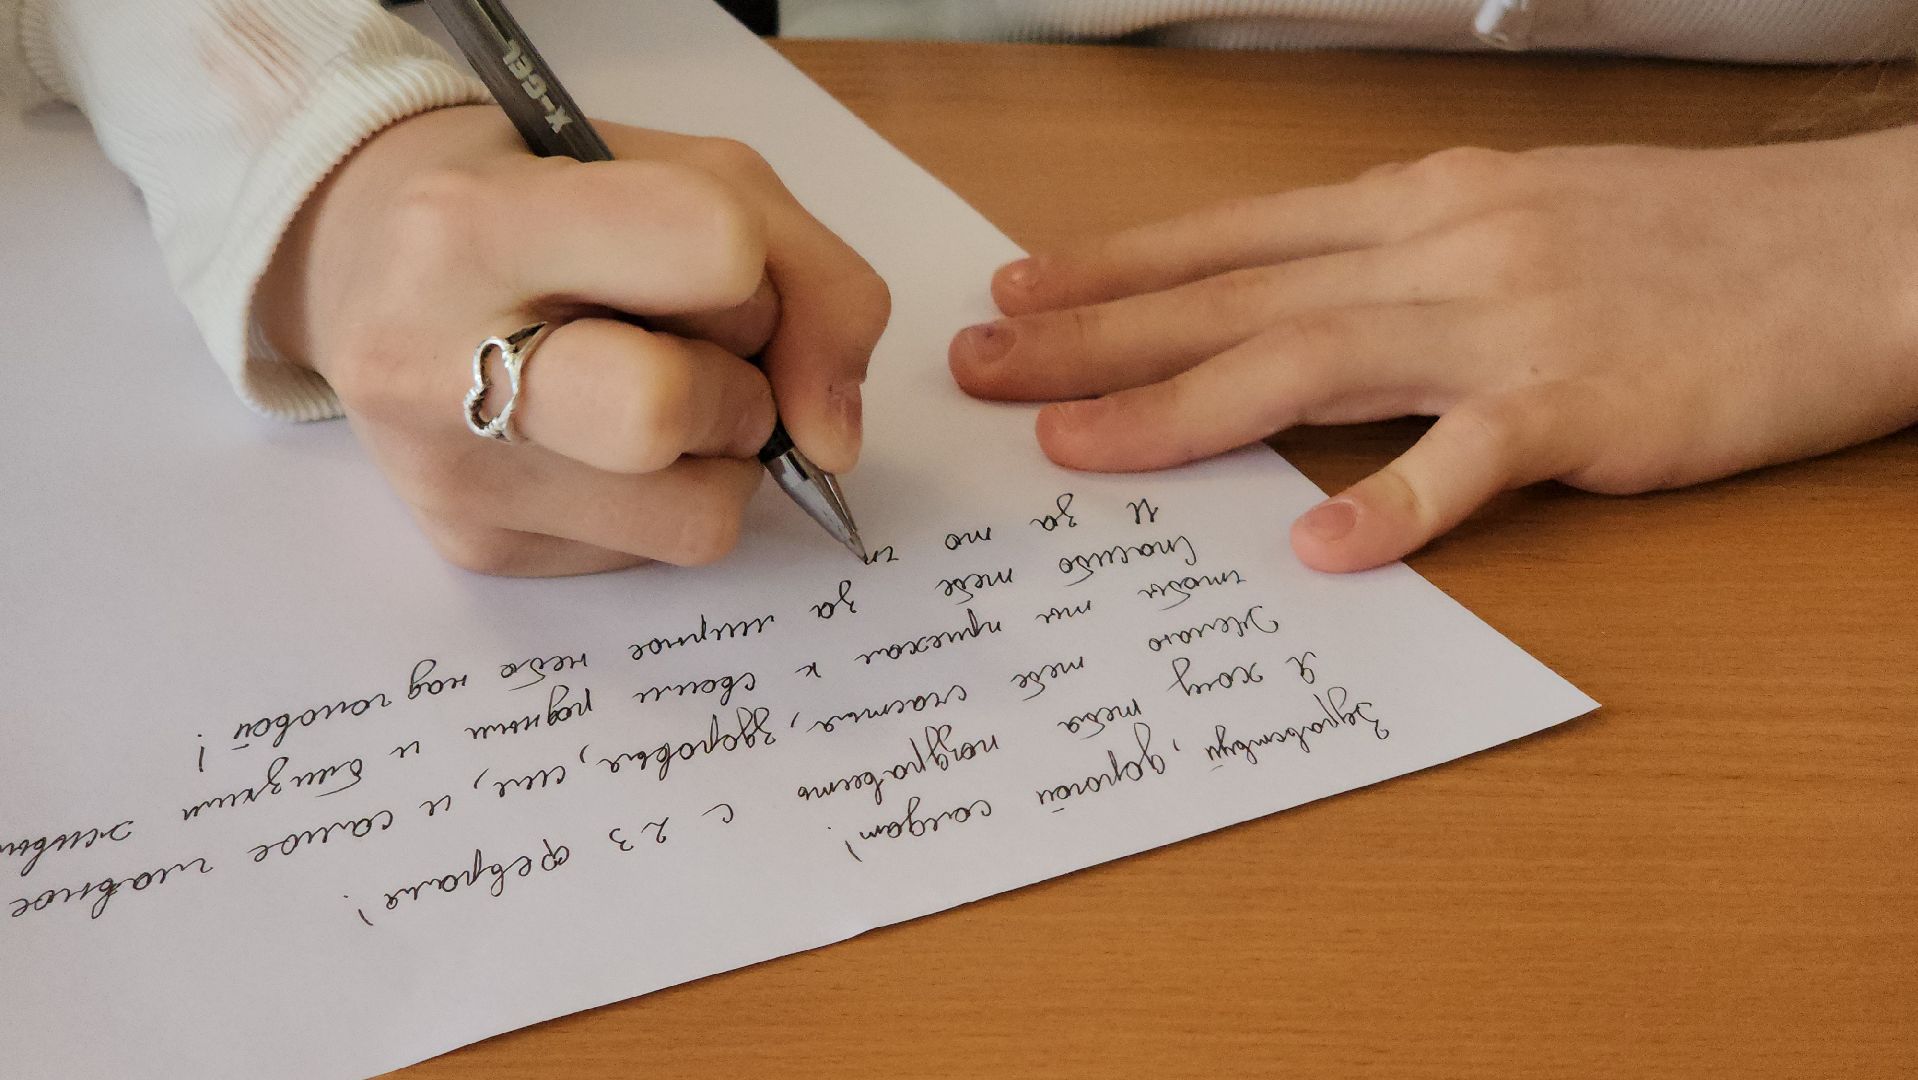 Здравствуй, дорогой солдат!
Я хочу тебя поздравить с 23 февраля!
Желаю тебе счастья, здоровья, сил, и самое главное
чтобы ты приехал к своим родным и близким живым
Спасибо тебе за мирное небо над головой!
И за то чт
X-GEL